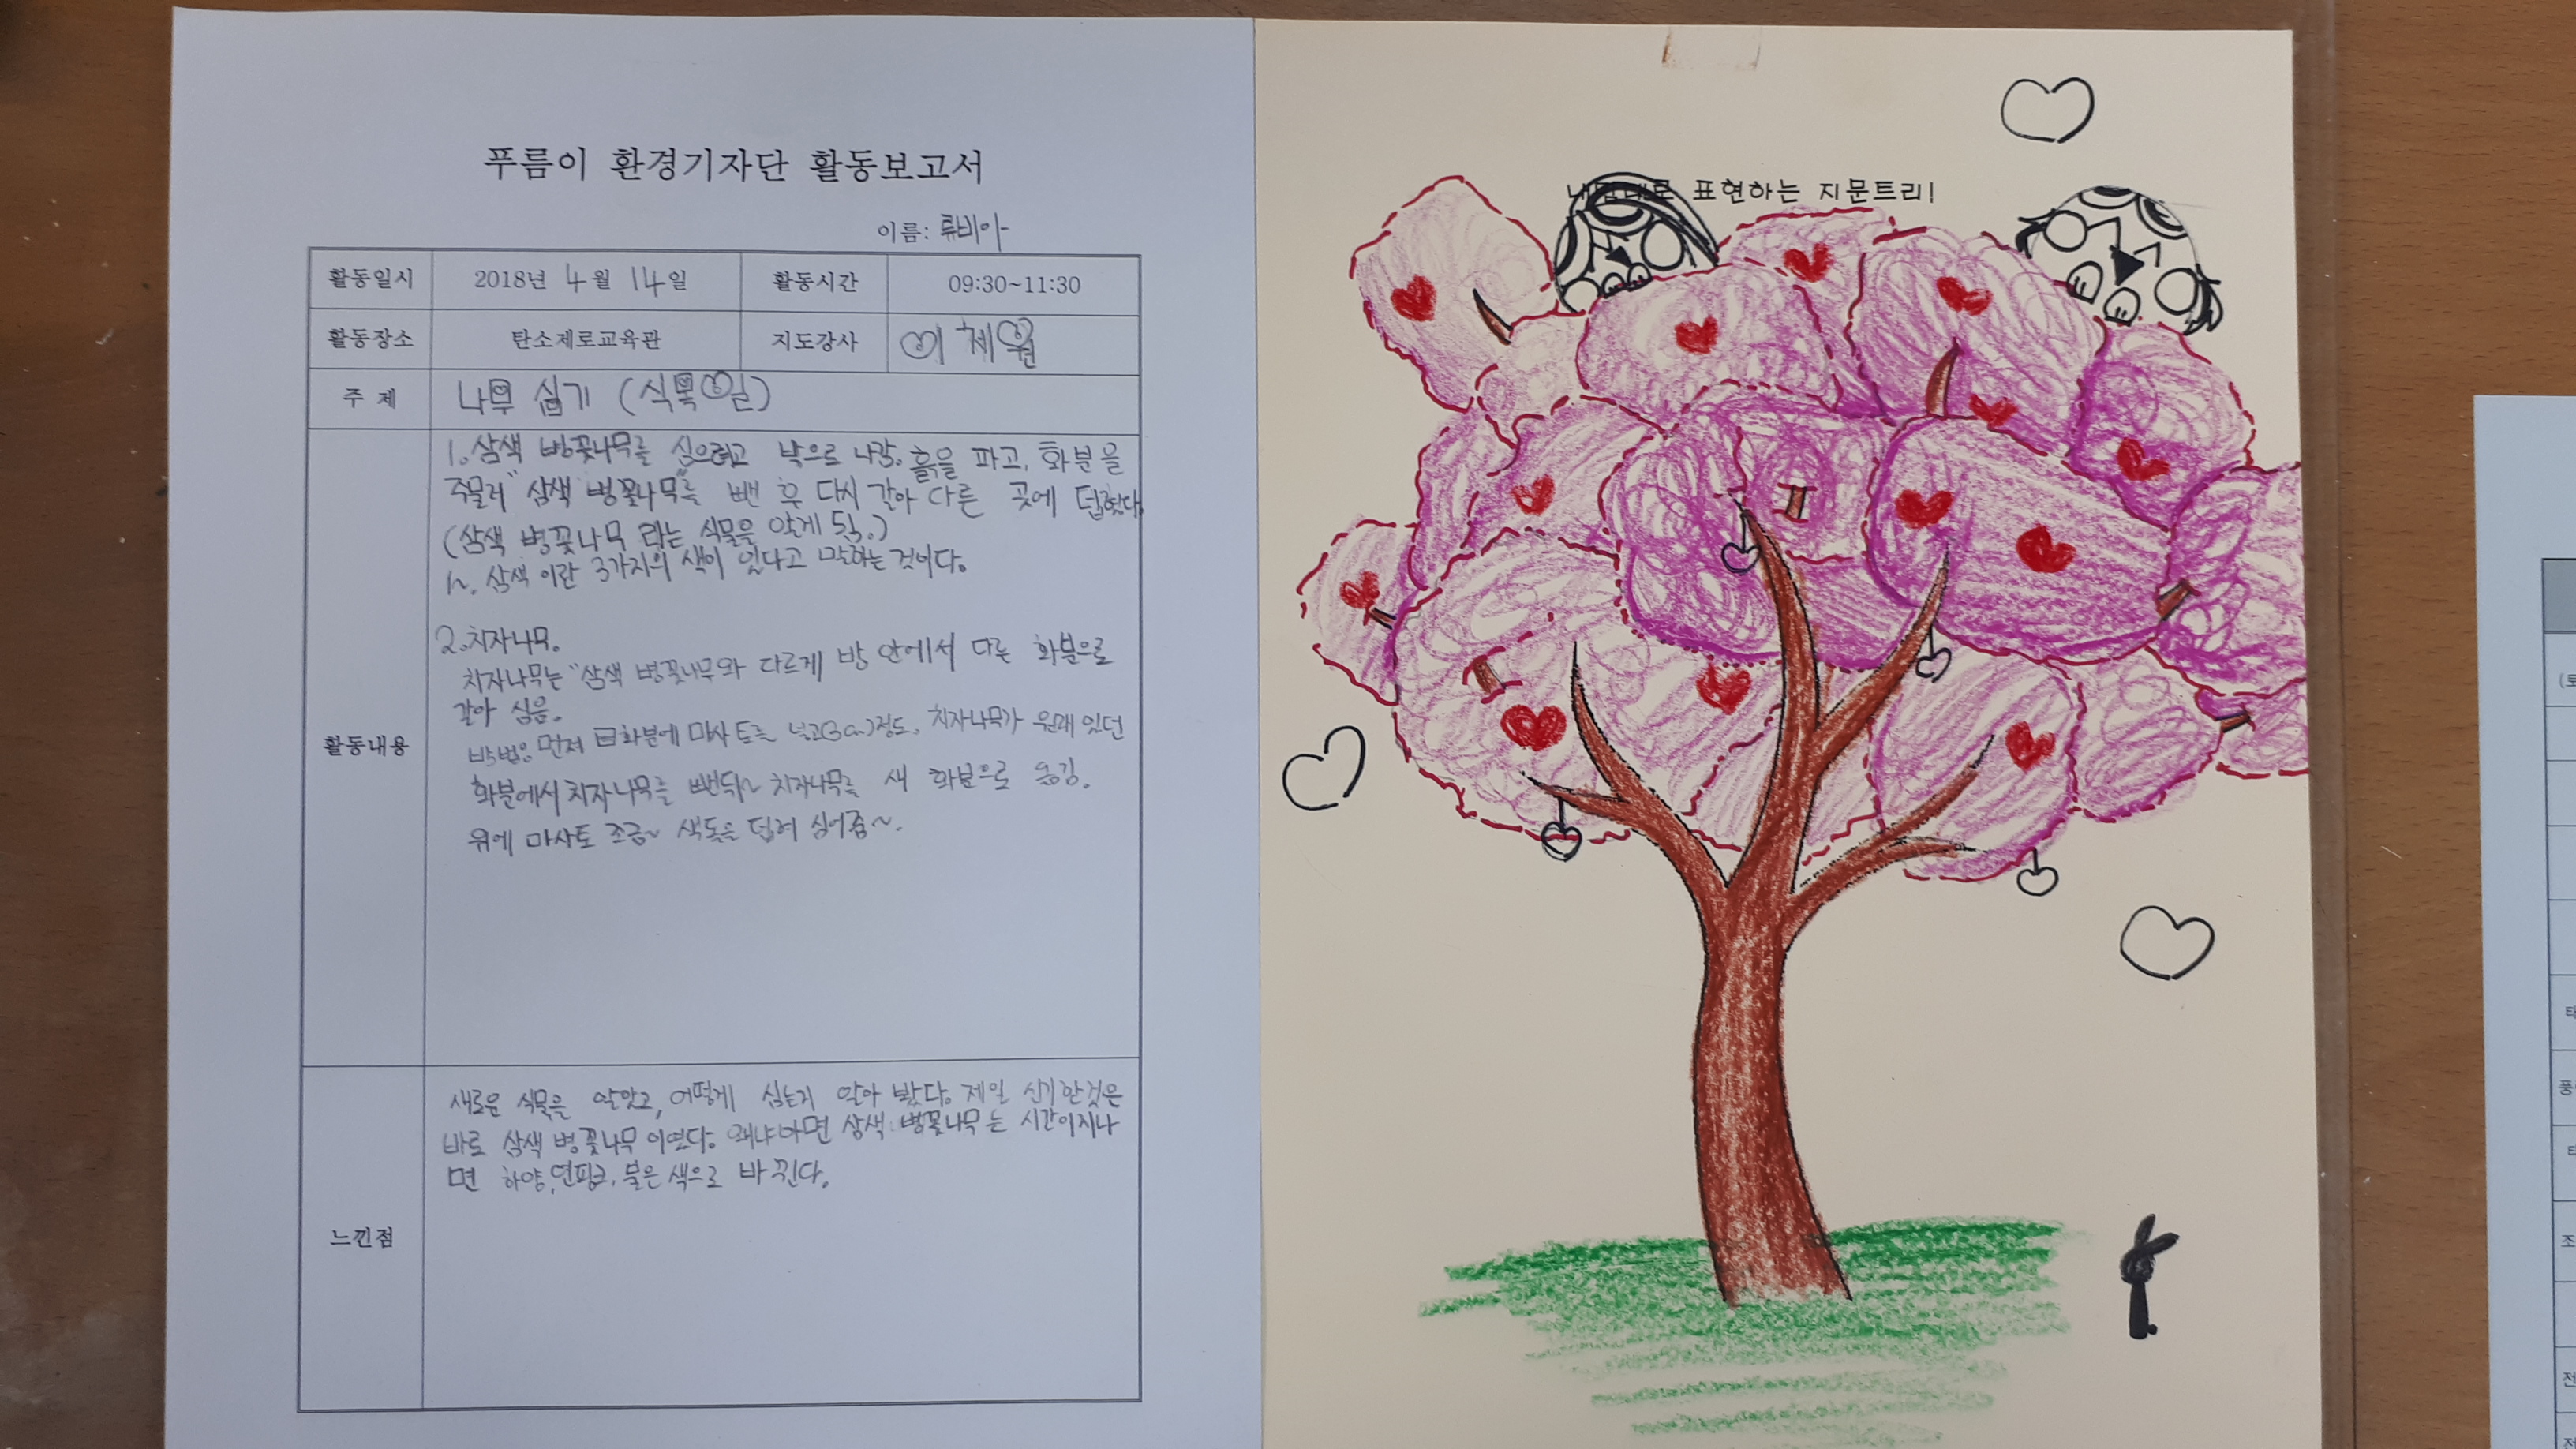 푸름이 환경기자단 활동보고서
이름: 류비아
활동일시 2018년 4월 14일 활동시간 09:30~11:30
활동장소 탄소제로교육관 지도강사 이제원
주 제 나무 심기 (식목일)
활동내용
1. 삼색 병꽃나무를 심으려고 밖으로 나감. 흙을 파고, 화분을
주물러 "삼색 병꽃나무"를 뺀 후 다시 갈아 다른 곳에 덮혔다.
(삼색 병꽃나무 라는 식물을 알게 됨.)
삼색 이란 3가지의 색이 있다고 말하는 것이다.
2. 치자나무.
치자나무는 "삼색 병꽃나무와 다르게 방 안에서 다른 화분으로
갈아 심음.
방법은 먼저 화분에 마사토를 넣고 정도, 치자나무가 원래 있던
화분에서 치자나무를 뺀뒤~ 치자나무를 새 화분으로 옮김.
위에 마사토 조금~ 색돌을 덮혀 심어줌~.
느낀점
새로운 식물을 알았고, 어떻게 심는지 알아 봤다. 제일 신기한것은
바로 삼색 병꽃나무 이였다. 왜냐하면 삼색 병꽃나무는 시간이지나
면 하양, 연핑크, 붉은 색으로 바뀐다.
표현하는 지문트리